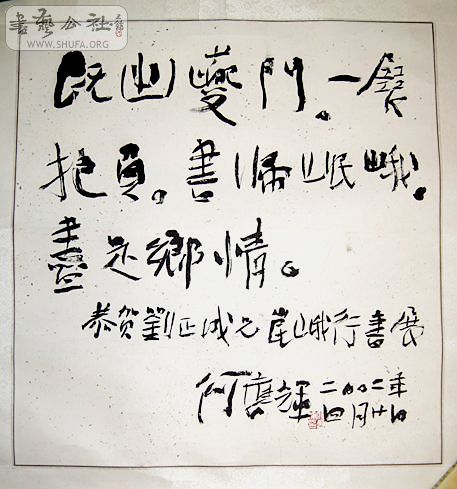 書藝公社
WWW.SHUFA.ORG
既出夔門。一展
抱負。書歸岷峨。
盡是鄉情。
恭賀劉正成兄岷峨行書展
何應輝 二〇〇二年
四月廿日